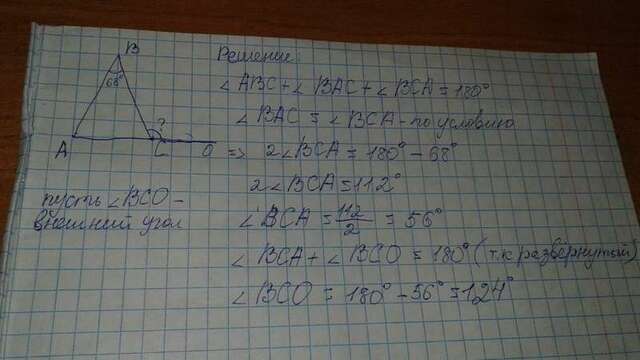 B
68°
?
A
C
O
пусть ∠BCO -
внешний угол
Решение:
∠ABC + ∠BAC + ∠BCA = 180°
∠BAC = ∠BCA - по условию
=> 2∠BCA = 180° - 68°
2∠BCA = 112°
∠BCA = 112/2 = 56°
∠BCA + ∠BCO = 180° (т.к развёрнутый)
∠BCO = 180° - 56° = 124°